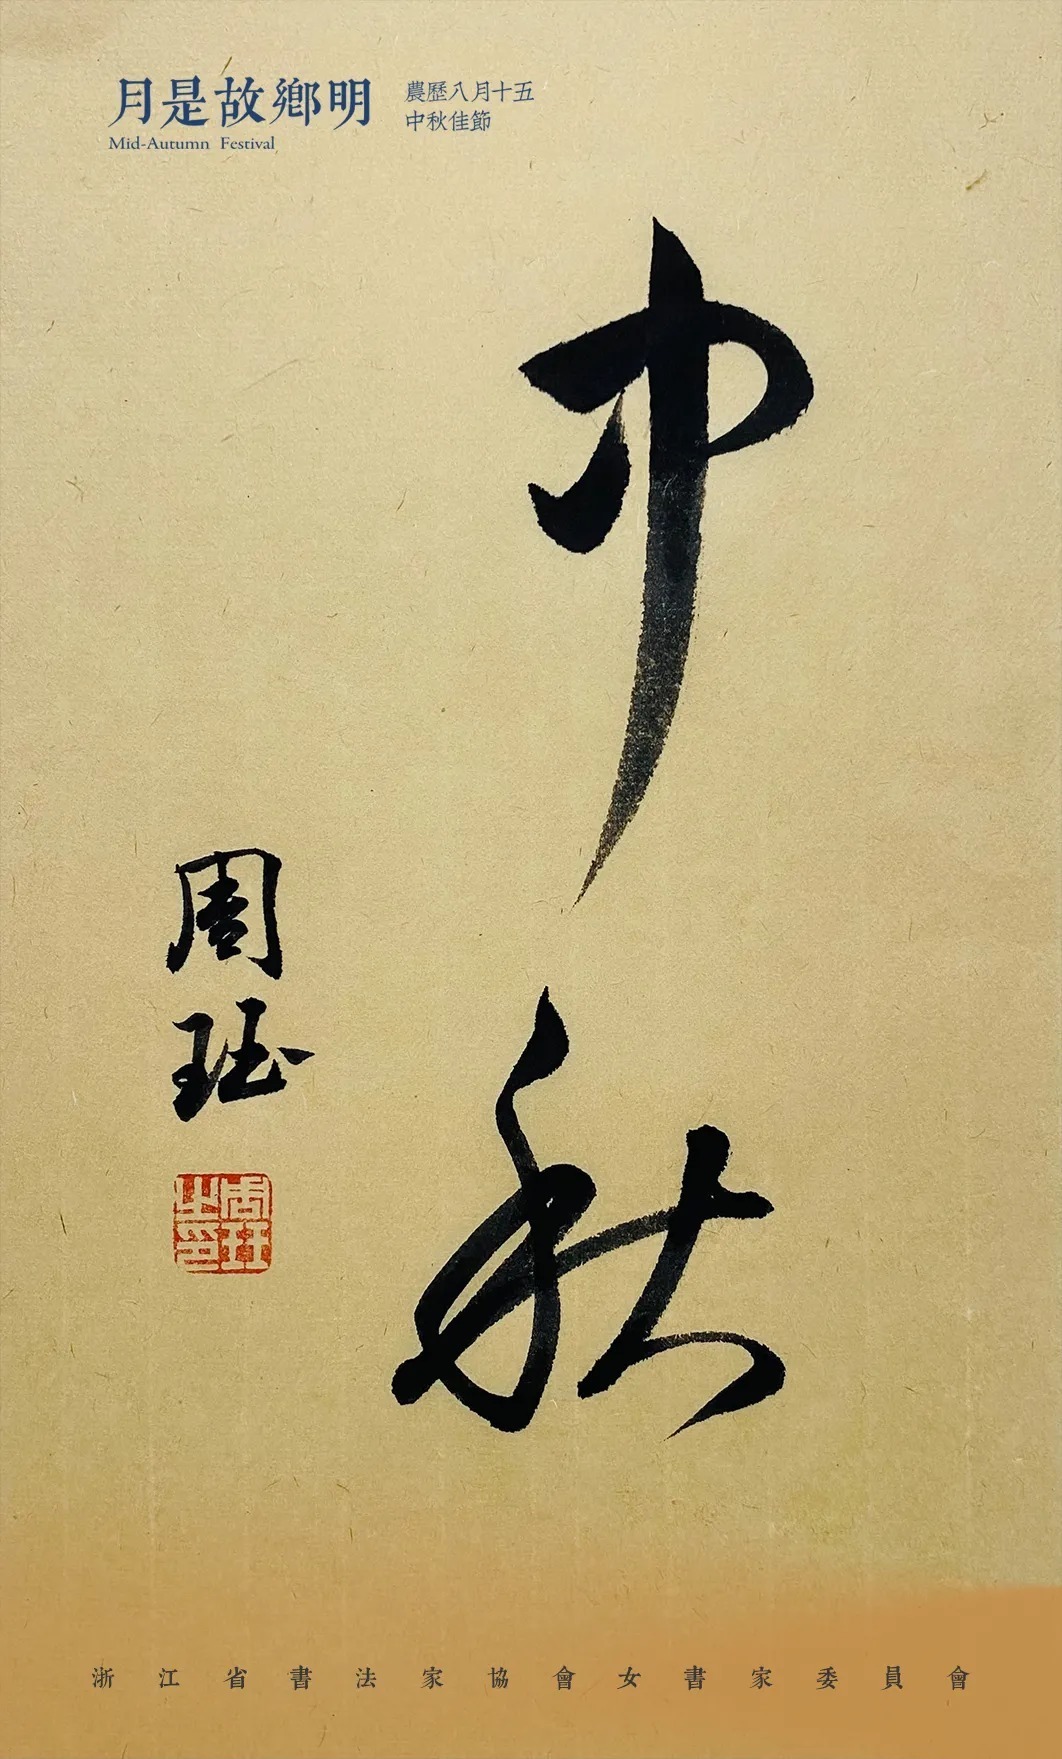 月是故鄉明
Mid-Autumn Festival
農歷八月十五
中秋佳節
中秋
周珏
周玨之印
浙江省書法家協會女書家委員會